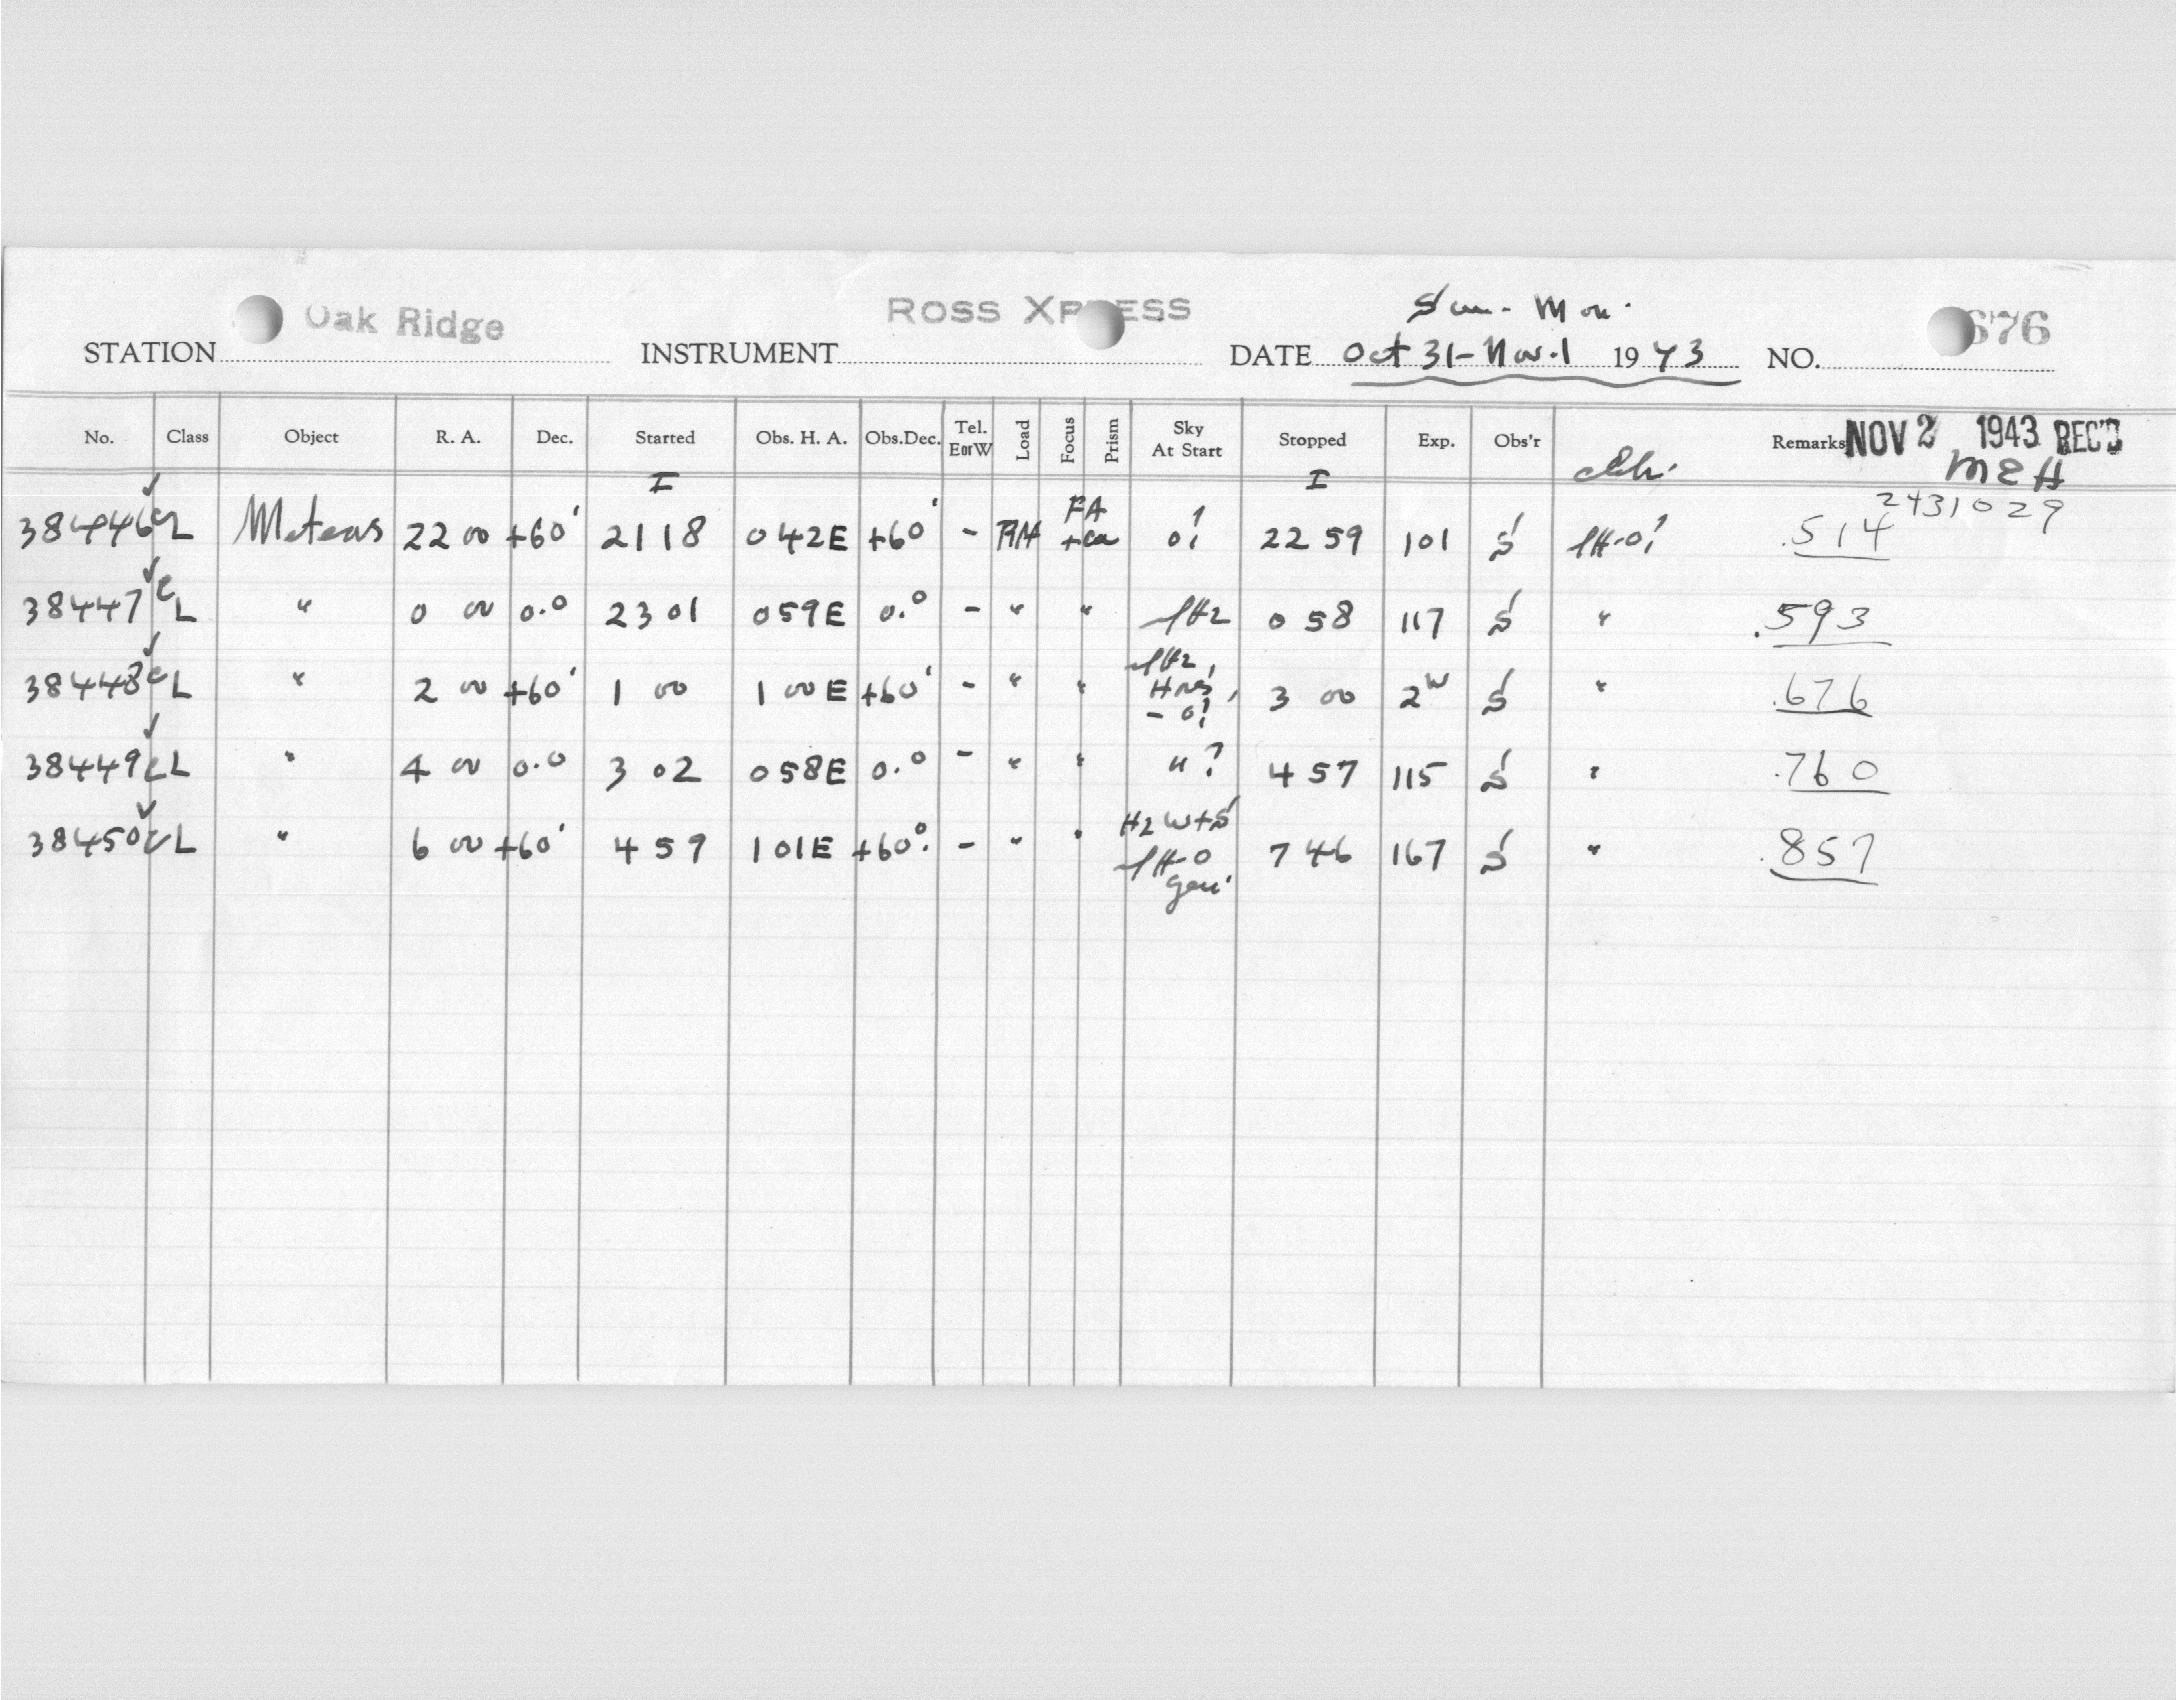 Oak Ridge ROSS XPRESS Sun. - Mon. 676
STATION INSTRUMENT DATE Oct 31 - Nov. 1 1943 NO.
No. Class Object R. A. Dec. Started Obs. H. A. Obs.Dec. Tel. E or W Load Focus Prism Sky At Start Stopped Exp. Obs'r Remarks NOV 2 1943 REC'D
I I MEH
2431029
38446 CL Meteors 22 00 +60° 21 18 0 42E +60° - FA 0! 22 59 101 S .514
38447 CL " 0 00 0.0 23 01 0 59E 0.0 - " " 0 58 117 S " .593
38448 CL " 2 00 +60° 1 00 1 00E +60° - " " - 0! 3 00 S " .676
38449 CL " 4 00 0.0 3 02 0 58E 0.0 - " " "? 4 57 115 S " .760
38450 CL " 6 00 +60° 4 59 1 01E +60° - " " Hz W+S 7 46 167 S " .857